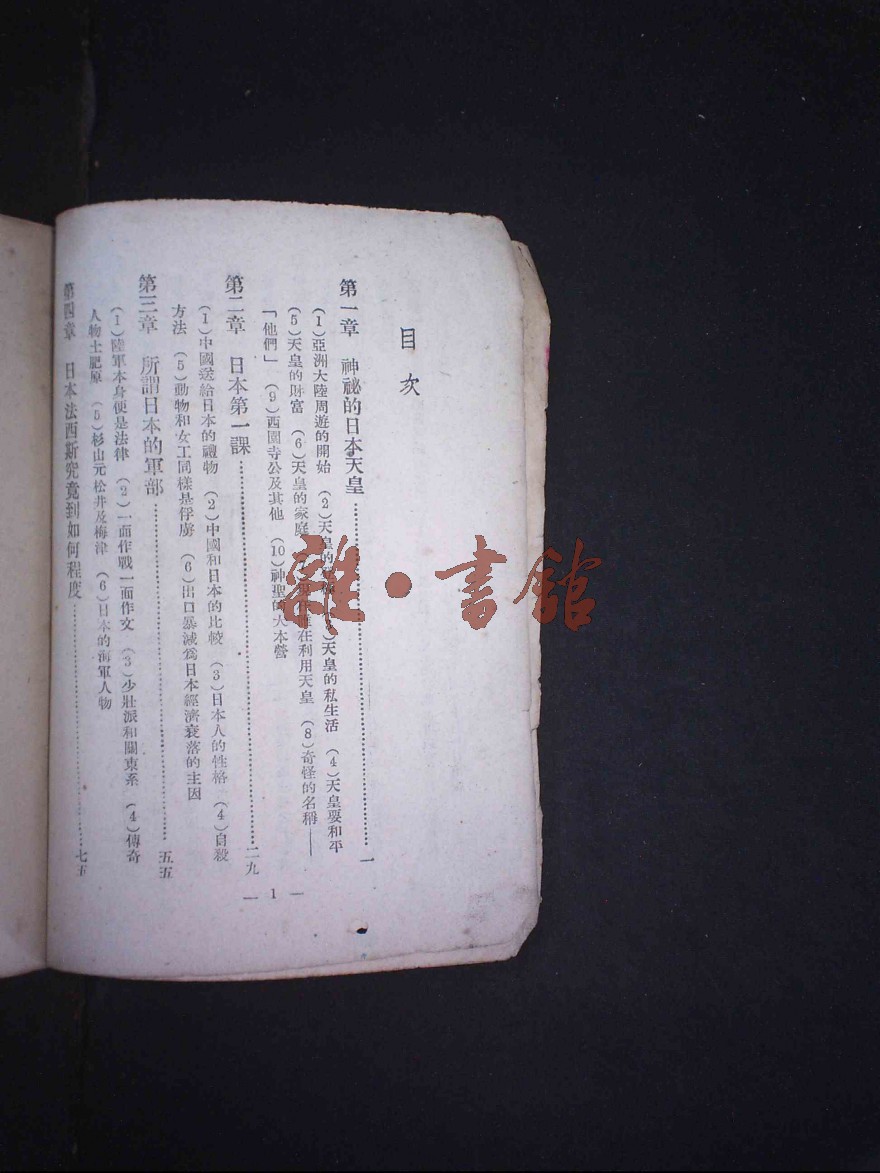 目次
第一章　神祕的日本天皇……………………一
(1)亞洲大陸周遊的開始　(2)天皇的　天皇的私生活　(4)天皇要和平
(5)天皇的財富　(6)天皇的家庭　在利用天皇　(8)奇怪的名稱——
「他們」　(9)西園寺公及其他　(10)神聖的大本營
第二章　日本第一課……………………二九
(1)中國送給日本的禮物　(2)中國和日本的比較　(3)日本人的性格　(4)自殺
方法　(5)動物和女工同樣是俘虜　(6)出口暴減爲日本經濟衰落的主因
第三章　所謂日本的軍部……………………五五
(1)陸軍本身便是法律　(2)一面作戰一面作文　(3)少壯派和關東系　(4)傳奇
人物土肥原　(5)杉山元松井及梅津　(6)日本的海軍人物
第四章　日本法西斯究竟到如何程度……………………七五
— 1 —
雜·書館